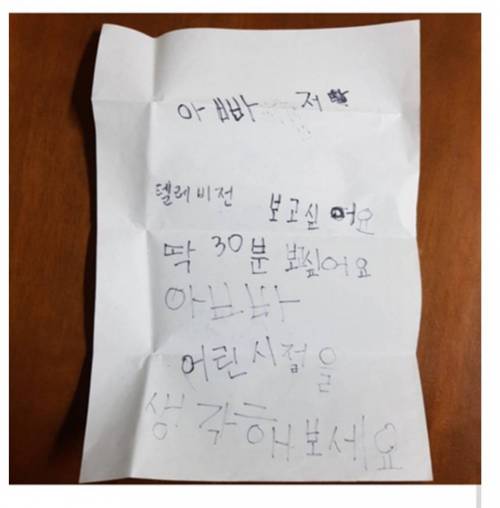 아빠 저
텔레비전 보고싶어요
딱 30분 보싶어요
아빠
어린시점을
생각해보세요